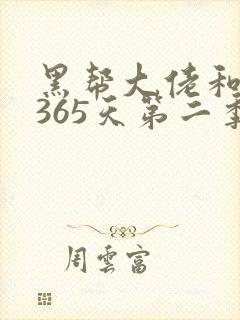 黑帮大佬和
365天第二季
周云富